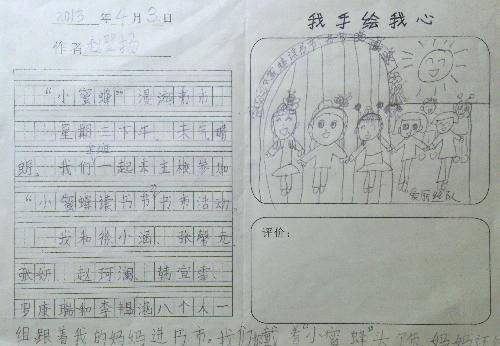 2013年4月3日
作者赵
"小蜜蜂"漫游书市
星期三下午，天气晴
朗，我们全班一起来主楼参加
"小蜜蜂读书节"书市活动。
我和徐小涵、张馨元、
张妍、赵珂澜、韩宜霏、
罗康瑞和李福港八个人一
组跟着我的妈妈进书市。我们戴着"小蜜蜂"头饰，妈妈还
我手绘我心
美丽组队
评价：